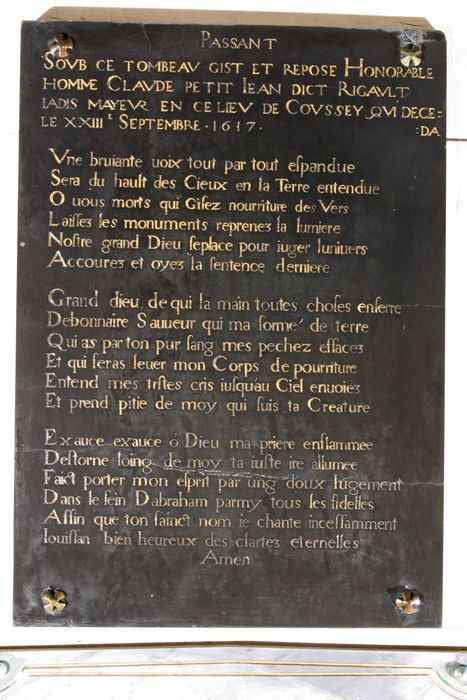 PASSANT
SOVB CE TOMBEAV GIST ET REPOSE HONORABLE
HOMME CLAVDE PETIT IEAN DICT RIGAVLT
IADIS MAYEVR EN CE LIEV DE COVSSEY QVI DECE=
LE XXIII.E SEPTEMBRE · 1617 · =DA
Vne bruiante uoix tout par tout eſpandue
Sera du hault des Cieux en la Terre entendue
O uous morts qui Giſez nourriture des Vers
Laiſſez les monuments reprenez la lumiere
Noſtre grand Dieu ſeplace pour iuger luniuers
Accourez et oyez la ſentence derniere
Grand dieu, de qui la main toutes choſes enſerre
Debonnaire Sauueur qui ma formé de terre
Qui as par ton pur ſang mes pechez effacez
Et qui feras leuer mon Corps de pourriture
Entend mes triſtes cris iuſquau Ciel enuoiez
Et prend pitie de moy qui ſuis ta Creature
Exauce exauce ó Dieu ma priere enflammee
Deſtorne loing de moy ta iuſte ire allumee
Faict porter mon eſprit par ung doux Iugement
Dans le ſein Dabraham parmy tous les fidelles
Affin que ton ſainct nom ie chante inceſſamment
Iouiſſan bien heureux des clartez eternelles
Amen